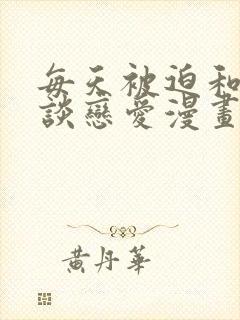 每天被迫和
談戀愛漫畫
黃丹華